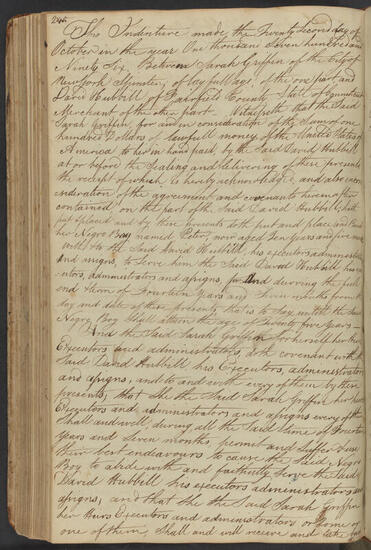 245
This Indenture made the Twenty Second day of
October in the year One thousand Seven hundred and
Ninety Six Between Sarah Griffin of the City of
New York Spinster, of lawful age, of the one part and
David Hubbill of Fairfield County State of Connecticut
Merchant of the other part Witnesseth that the Said
Sarah Griffin for and in consideration of the Sum of one
hundred Dollars lawfull money of the United States of
America to her in hand paid by the Said David Hubbill
at or before the Sealing and delivering of these presents
the receipt of which is hereby acknowledged and also in con
sideration of the agreement and covenants herein after
contained on the part of the Said David Hubbill hath
put & placed and by these presents doth put and place and Bind
her Negro Boy named Peter, now aged Ten Years and five months
with & to the Said David Hubbill his executors administrators
and assigns, to Serve him the Said David Hubbill his ex
ecutors, administrators and assigns, for and durring the full
end & term of Fourteen Years and Seven months from the
day and date of these presents, that is to Say untill the Said
Negro Boy Shall attain the age of Twenty five Years
And the Said Sarah Griffin for herself her
Executors and administrators, doth covenant with the
Said David Hubbill his Executors, administrators
and assigns, and to and with every of them by these
presents, that She the Said Sarah Griffin her
Executors and administrators and assigns every of them
Shall and will, during all the Said time of Fourteen
Years and Seven months, permit and Suffer & use
their best endeavours to cause the Said Negro
Boy to abide with and faithfully Serve the Said
David Hubbill his executors administrators and
assigns; and that She the Said Sarah Griffin
her Heirs Executors and administrators or Some or
one of them, Shall and will receive and take